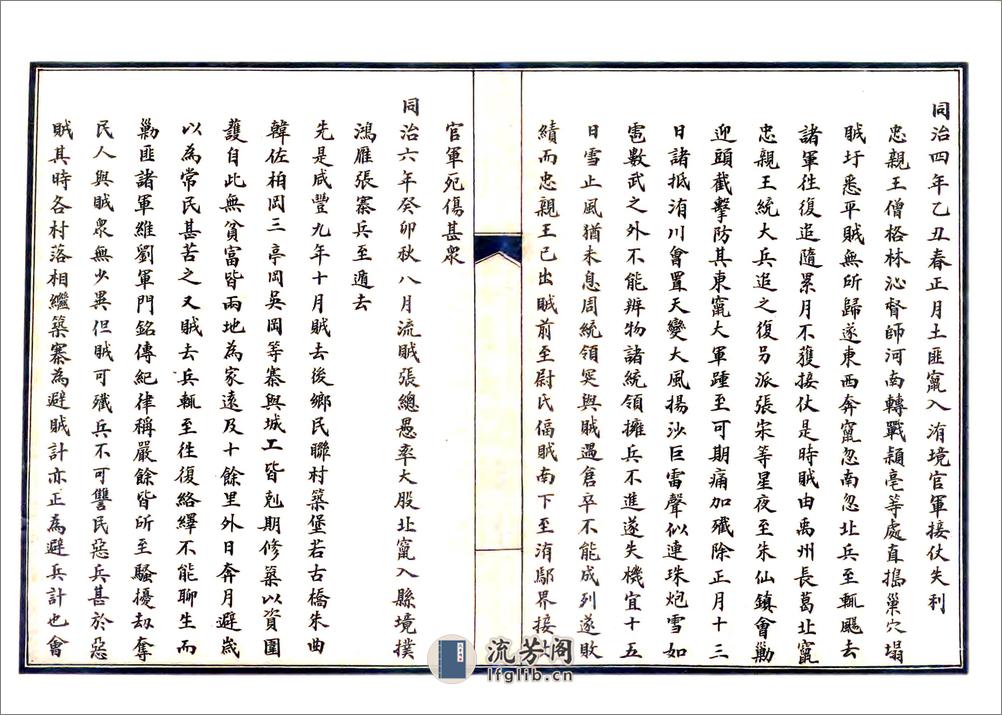 同治四年乙丑春正月土匪竄入洧境官軍接仗失利
忠親王僧格林沁督師河南轉戰潁亳等處直搗巢穴塌
賊圩悉平賊無所歸遂東西奔竄忽南忽北兵至輒颺去
諸軍往復追隨累月不獲接仗是時賊由禹州長葛北竄
忠親王統大兵追之復另派張宋等星夜至朱仙鎮會勦
迎頭截擊防其東竄大軍踵至可期痛加殲除正月十三
日諸抵洧川會置天變大風揚沙巨雷聲似連珠炮雪如
雹數武之外不能辨物諸統領擁兵不進遂失機宜十五
日雪止風猶未息周統領冥與賊遇倉卒不能成列遂敗
績而忠親王已出賊前至尉氏偪賊南下至洧鄢界接
官軍死傷甚衆
同治六年癸卯秋八月流賊張總愚率大股北竄入縣境撲
鴻雁張寨兵至遁去
先是咸豐九年十月賊去後鄉民聯村築堡若古橋朱曲
韓佐柏岡三亭岡吳岡等寨與城工皆剋期修築以資圍
護自此無貧富皆兩地為家遠及十餘里外日奔月避歲
以為常民甚苦之又賊去兵輒至往復絡繹不能聊生而
勦匪諸軍維劉軍門銘傳紀律稱嚴餘皆所至騷擾劫奪
民人與賊衆無少異但賊可殲兵不可讐民惡兵甚於惡
賊其時各村落相繼築寨為避賊計亦正為避兵計也會
流芳阁
lfglib.cn